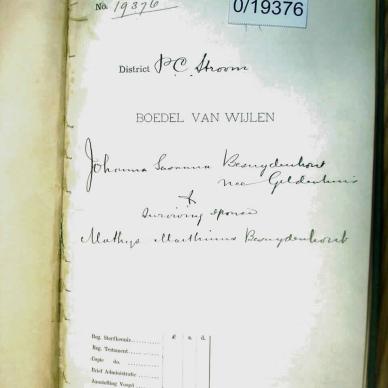 No. 19376
0/19376
District P.C. Stroom
BOEDEL VAN WIJLEN
Johanna Susanna Besuydenhout
nee Geldenhuis
&
surviving spouse
Mathys Marthinus Besuydenhout
Reg. Sterfkennis
£ s. d.
Reg. Testament
Copie do.
Brief Administratie
Aanstelling Voogd